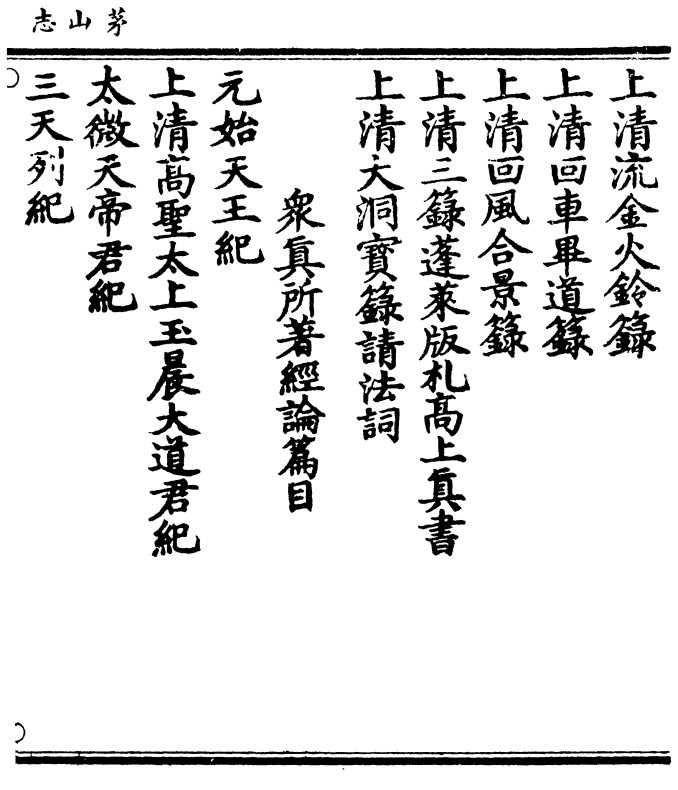 茅山志
上清流金火鈴籙
上清回車畢道籙
上清回風合景籙
上清三籙蓬萊版札高上眞書
上清大洞寶籙請法詞
衆眞所著經論篇目
元始天王紀
上清高聖太上玉晨大道君紀
太微天帝君紀
三天列紀